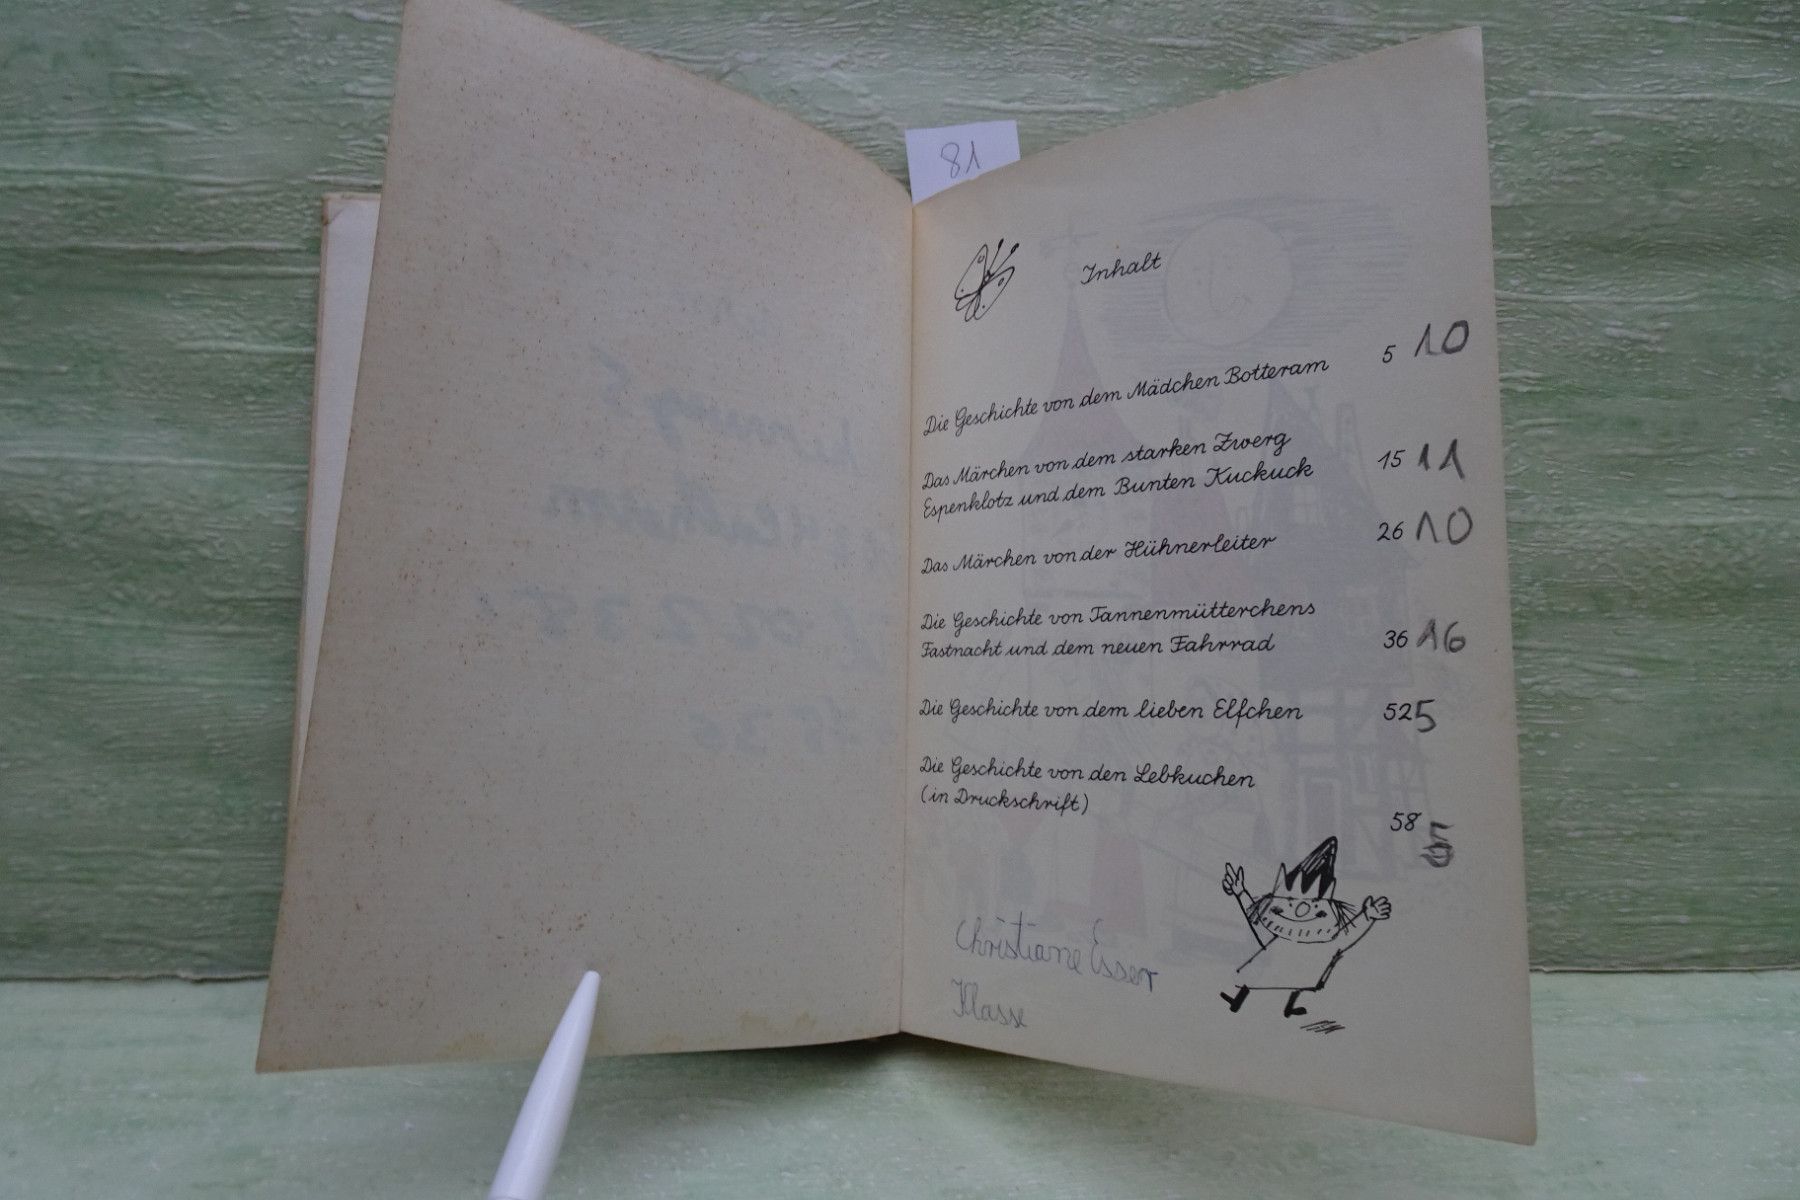 81
Inhalt
Die Geschichte von dem Mädchen Botteram 5 10
Das Märchen von dem starken Zwerg
Espenklotz und dem Bunten Kuckuck 15 11
Das Märchen von der Hühnerleiter 26 10
Die Geschichte von Tannenmütterchens
Fastnacht und dem neuen Fahrrad 36 16
Die Geschichte von dem lieben Elfchen 52 5
Die Geschichte von den Lebkuchen
(in Druckschrift) 58
Christiane Esser
Klasse